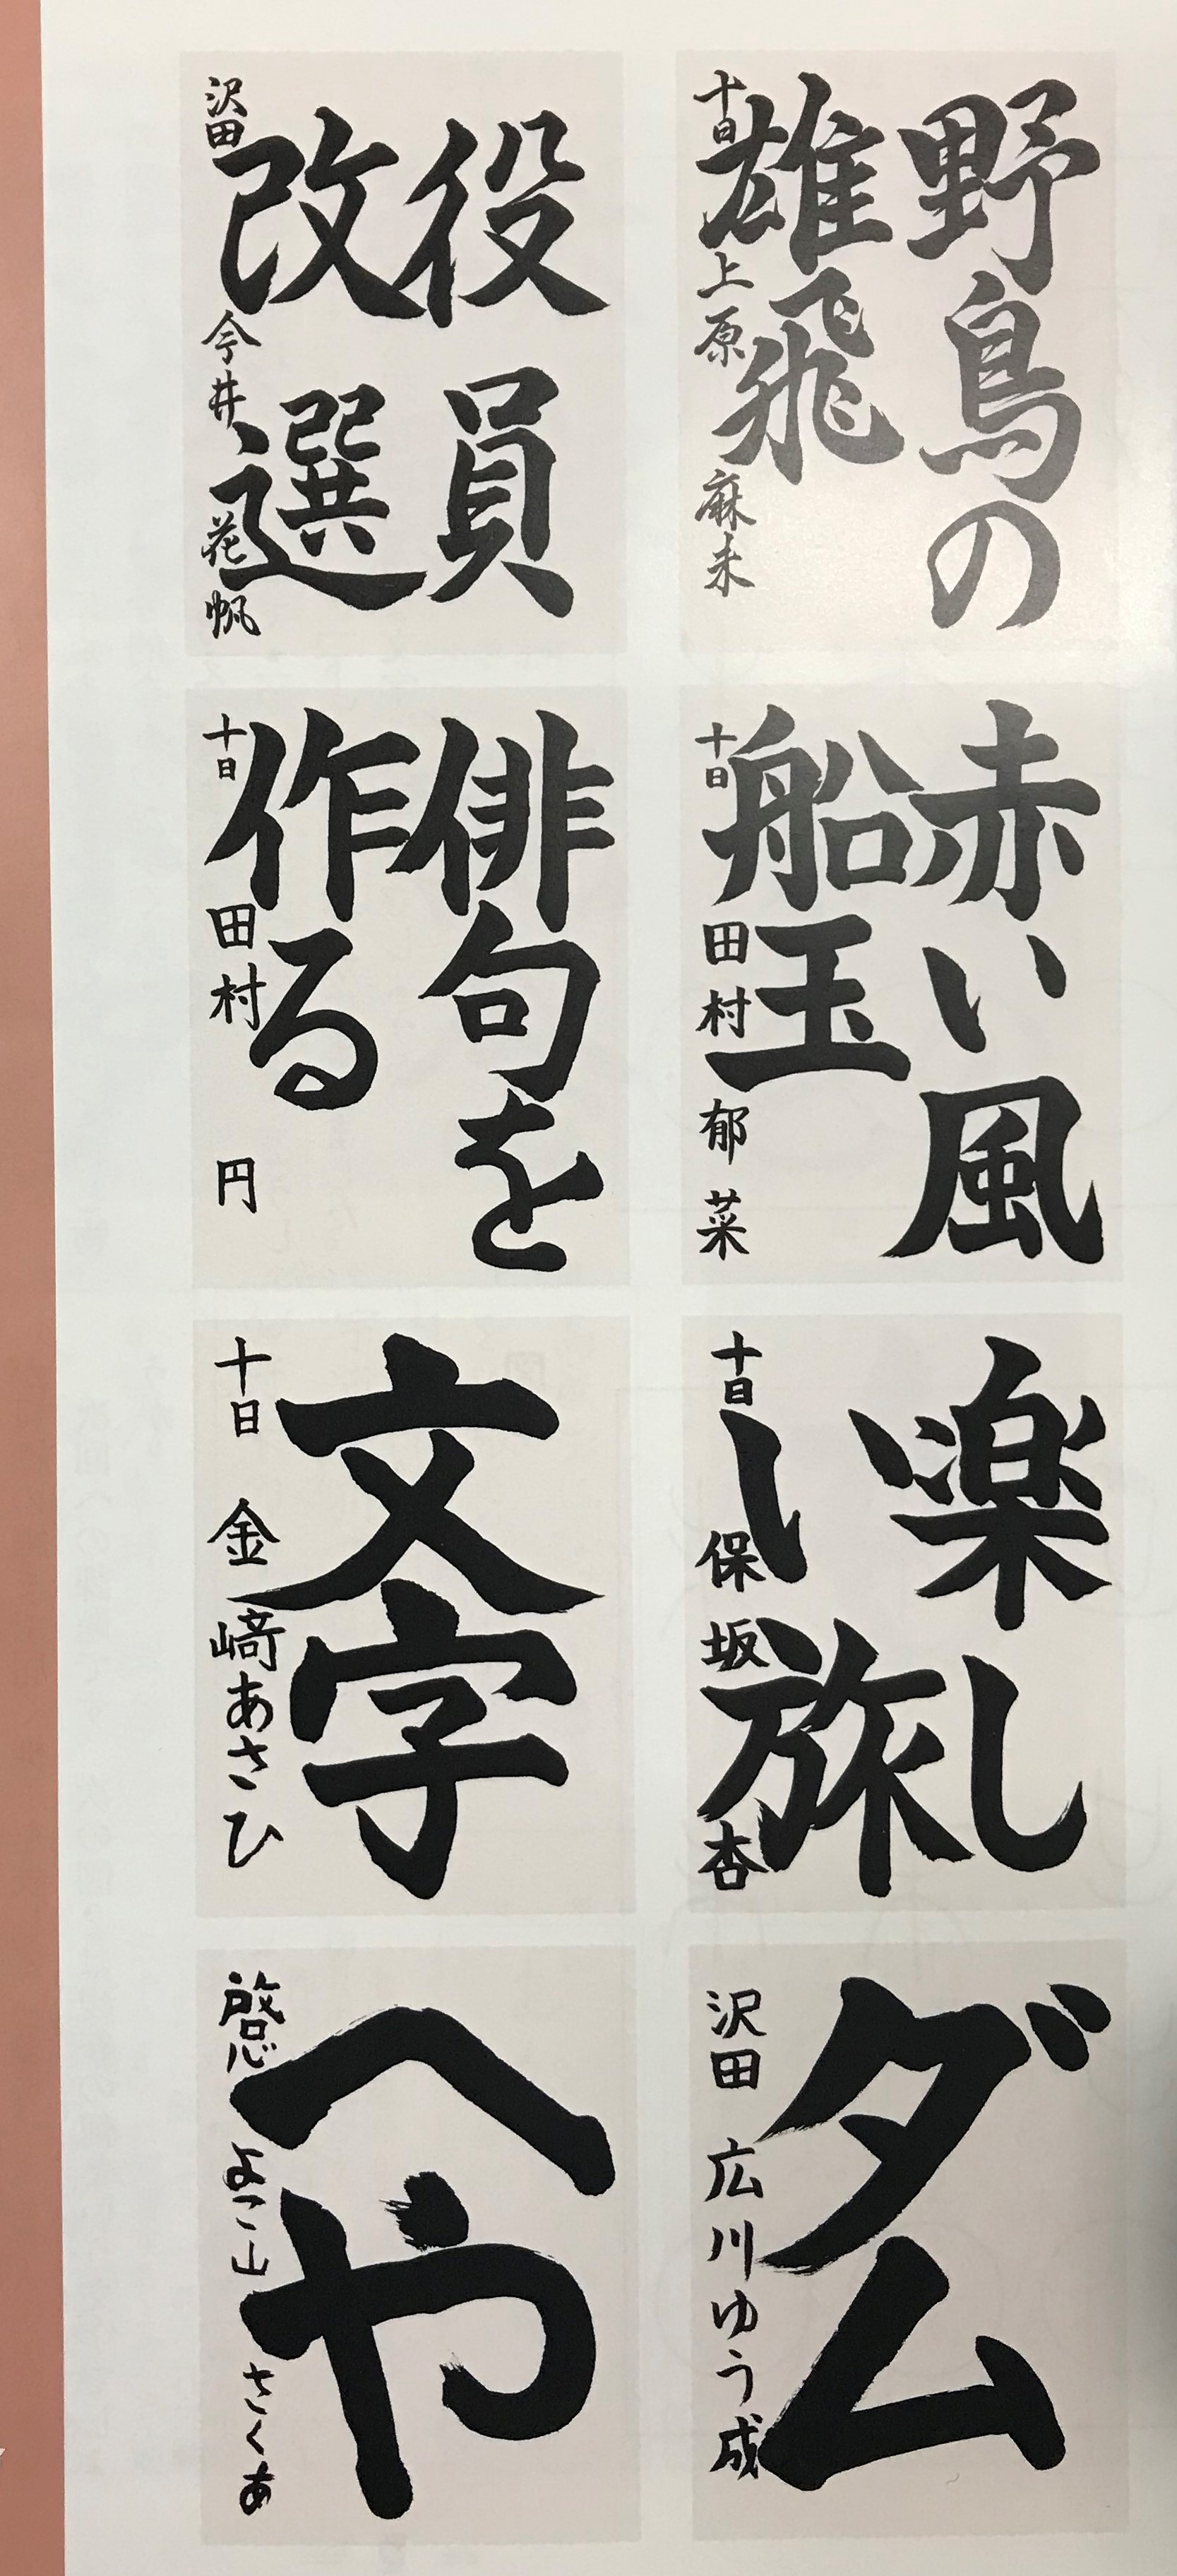 野鳥の
雄飛
十日 上原 麻未
役員
改選
沢田 今井 花帆
赤い風
船玉
十日 田村 郁菜
俳句を
作る
十日 田村 円
楽し
い旅
十日 保坂 杏
文字
十日 金﨑あさひ
ダム
沢田 広川ゆう成
へや
啓心 よこ山 さくあ